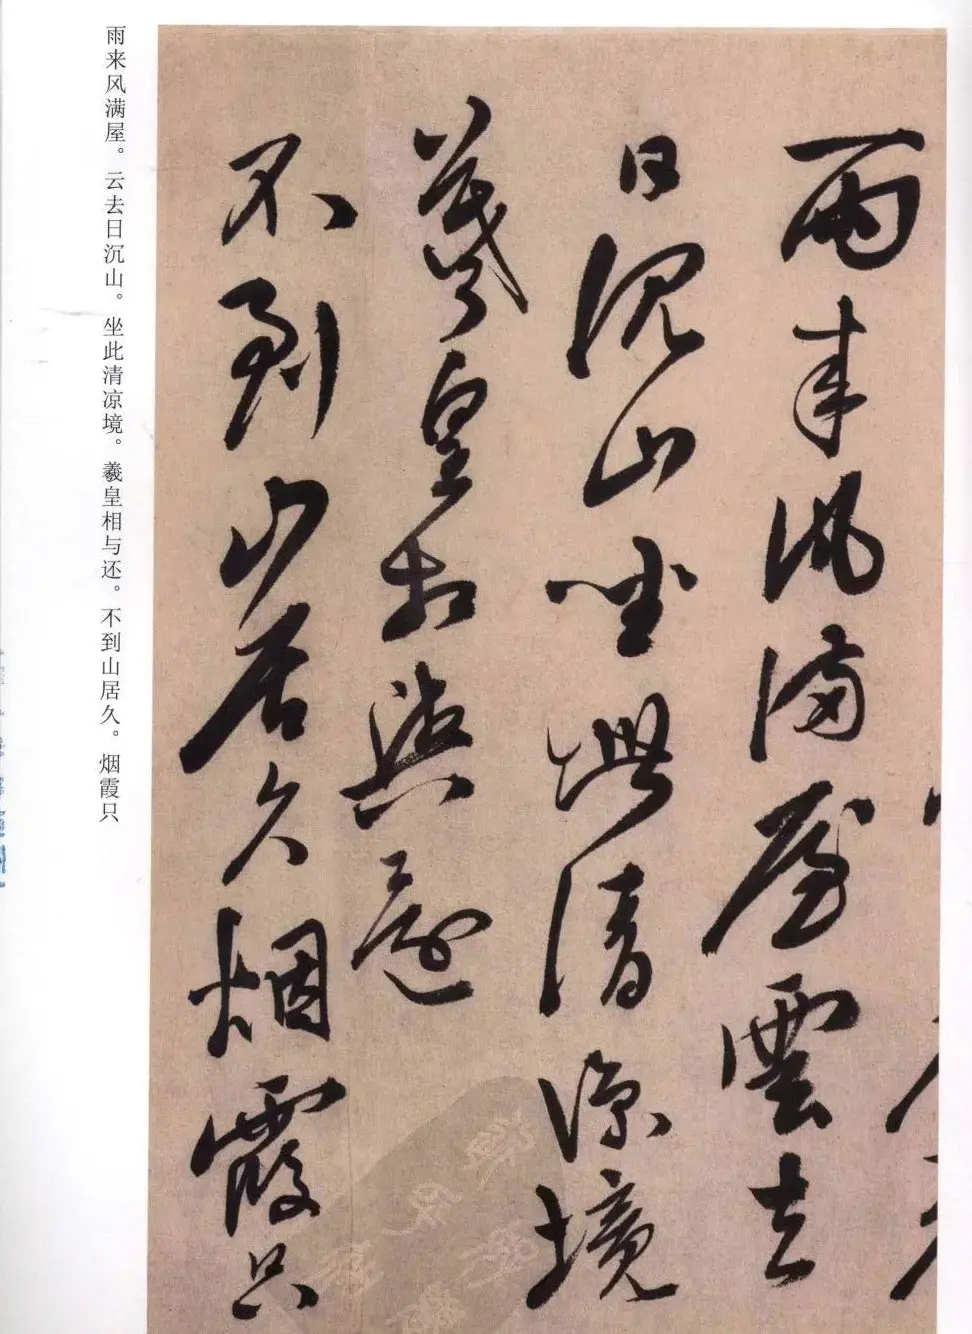 雨来风满屋。云去日沉山。坐此清凉境。羲皇相与还。不到山居久。烟霞只
雨来風满屋雲去
日沉山坐此清凉境
羲皇相與還
不到山居久烟霞只